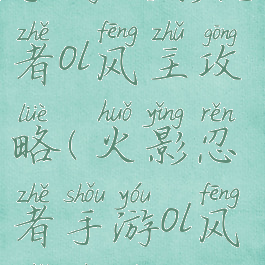 zhě fēng zhǔ gōng
者ol风主攻
lüè huǒ yǐng rěn
略(火影忍
zhě shǒu yóu fēng
者手游ol风